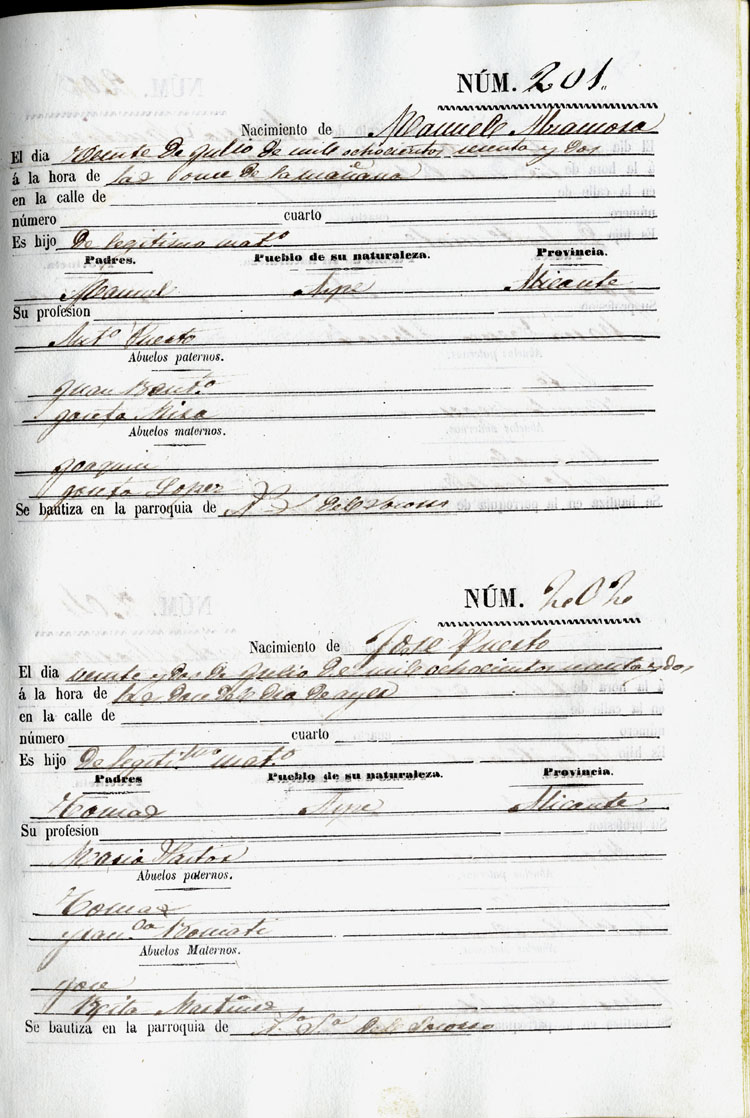 NÚM. 201.
Nacimiento de Manuel Miramosa
El dia veinte de Julio de mil ochocientos sesenta y dos
á la hora de las once de la mañana
en la calle de
número cuarto
Es hijo de legitimo mat.o
Padres. Pueblo de su naturaleza. Provincia.
Manuel Aspe Alicante
Su profesion
Ant.a Puerto
Abuelos paternos.
Juan Baut.a
Josefa Mira
Abuelos maternos.
Joaquin
Josefa Lopez
Se bautiza en la parroquia de N. S. del Socorro
NÚM. 202
Nacimiento de José Puerto
El dia veinte y dos de Julio de mil ochocientos sesenta y dos
á la hora de las doce del dia de ayer
en la calle de
número cuarto
Es hijo de legiti.mo mat.o
Padres Pueblo de su naturaleza. Provincia.
Tomas Aspe Alicante
Su profesion
Maria
Abuelos paternos.
Tomas
Fran.ca
Abuelos Maternos.
José
Rita Martinez
Se bautiza en la parroquia de N.a S.a del Socorro